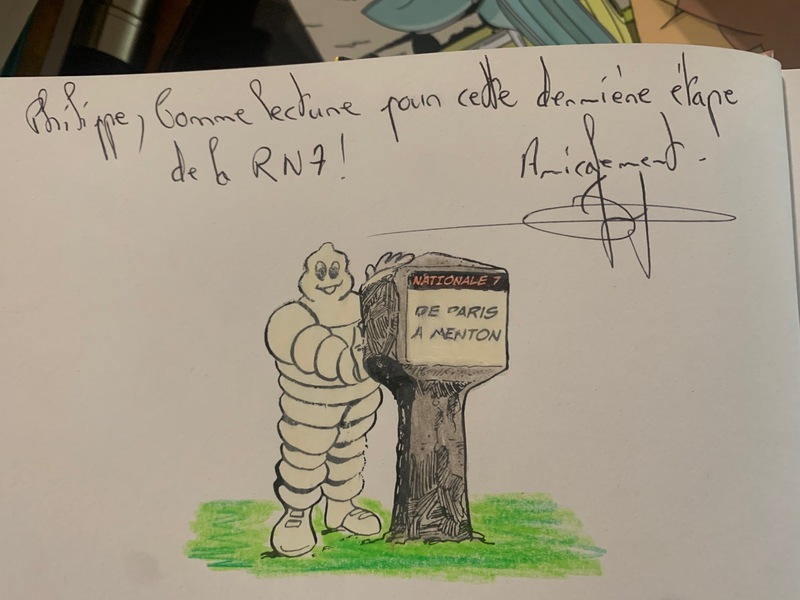 Philippe, Bonne lecture pour cette dernière étape
de la RN7!
Amicalement.
NATIONALE 7
DE PARIS
A MENTON